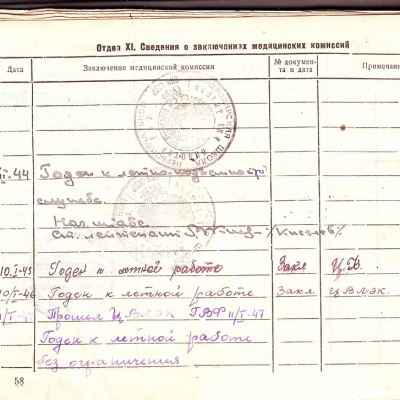 Отдел XI. Сведения о заключениях медицинских комиссий
Дата Заключение медицинской комиссии № докумен- та и дата Примечани
-44 Годен к летно-подъемной
службе.
Нач. штаба
ст. лейтенант /Киселев/
10.I-45 Годен к летной работе Закл Ц.В.
0/I-46 Годен к летной работе Закл. ЦВЛЭК.
/I-47 Прошел ЦВЛЭК ГВФ 11/I-47
Годен к летной работе
без ограничения
58